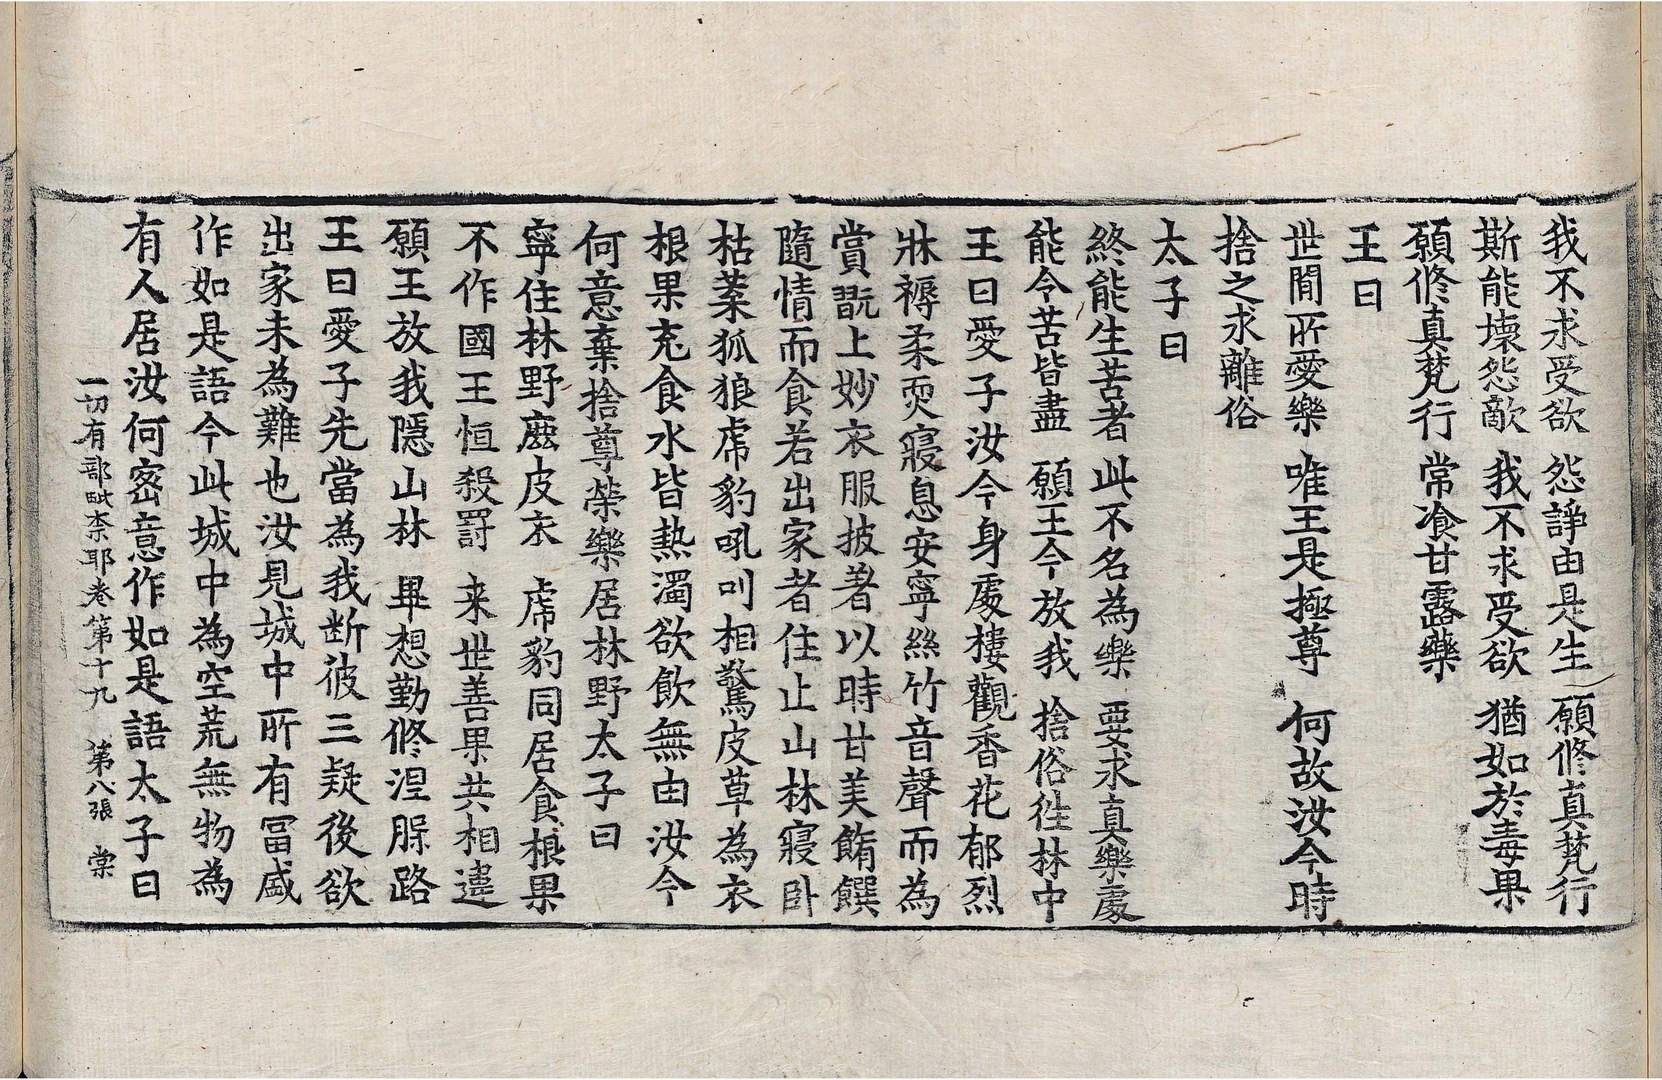 我不求受欲 怨諍由是生 願修真梵行
斯能壞怨敵 我不求受欲 猶如於毒果
願修真梵行 常飡甘露藥
王曰
世間所愛樂 唯王是極尊 何故汝今時
捨之求離俗
太子曰
終能生苦者 此不名為樂 要求真樂處
能令苦皆盡 願王今放我 捨俗往林中
王曰愛子汝今身處樓觀香花郁烈
牀褥柔耎寢息安寧絲竹音聲而為
賞翫上妙衣服披著以時甘美餚饌
隨情而食若出家者住止山林寢卧
枯葉狐狼虎豹吼叫相驚皮草為衣
根果充食水皆熱濁欲飲無由汝今
何意棄捨尊榮樂居林野太子曰
寧住林野麁皮衣 虎豹同居食根果
不作國王恒殺罸 来世善果共相違
願王放我隱山林 畢想勤修涅槃路
王曰愛子先當為我断彼三疑後欲
出家未為難也汝見城中所有冨盛
作如是語今此城中為空荒無物為
有人居汝何密意作如是語太子曰
一切有部毗柰耶卷第十九 第八張 棠